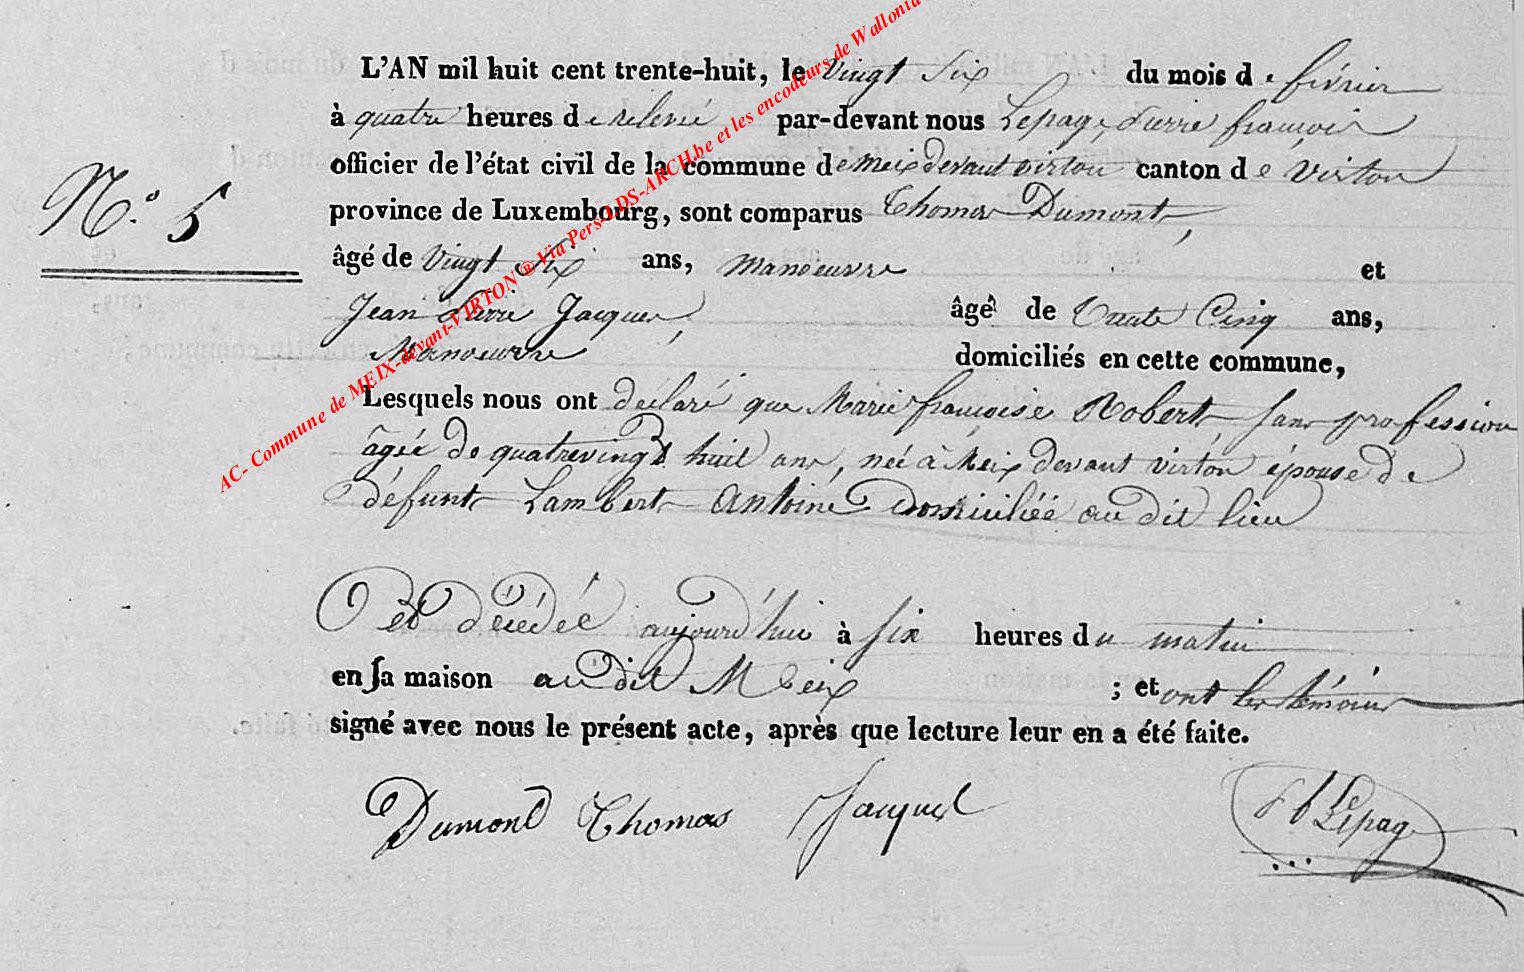 L'AN mil huit cent trente-huit, le vingt six du mois de février
à quatre heures de relevé par-devant nous Lepage, Pierre françois
officier de l'état civil de la commune de Meix devant virton canton de Virton
N.° 5
province de Luxembourg, sont comparus Thomas Dumont,
âgé de vingt six ans, manoeuvre et
Jean Pierre Jacques, âgé de trente Cinq ans,
Manoeuvre domiciliés en cette commune,
Lesquels nous ont déclaré que Marie françoise Robert sans profession
âgée de quatrevingt huit ans, née à Meix devant virton épouse de
défunt Lambert Antoine domiciliée au dit lieu
est décédée aujourd'hui à six heures du matin
en sa maison au dit Meix ; et ont les témoins
signé avec nous le présent acte, après que lecture leur en a été faite.
Dumond Thomas Jacques Lepage
AC- Commune de MEIX-devant-VIRTON ® Via Pers-LDS-ARCH.be et les encodeurs de Wallonia